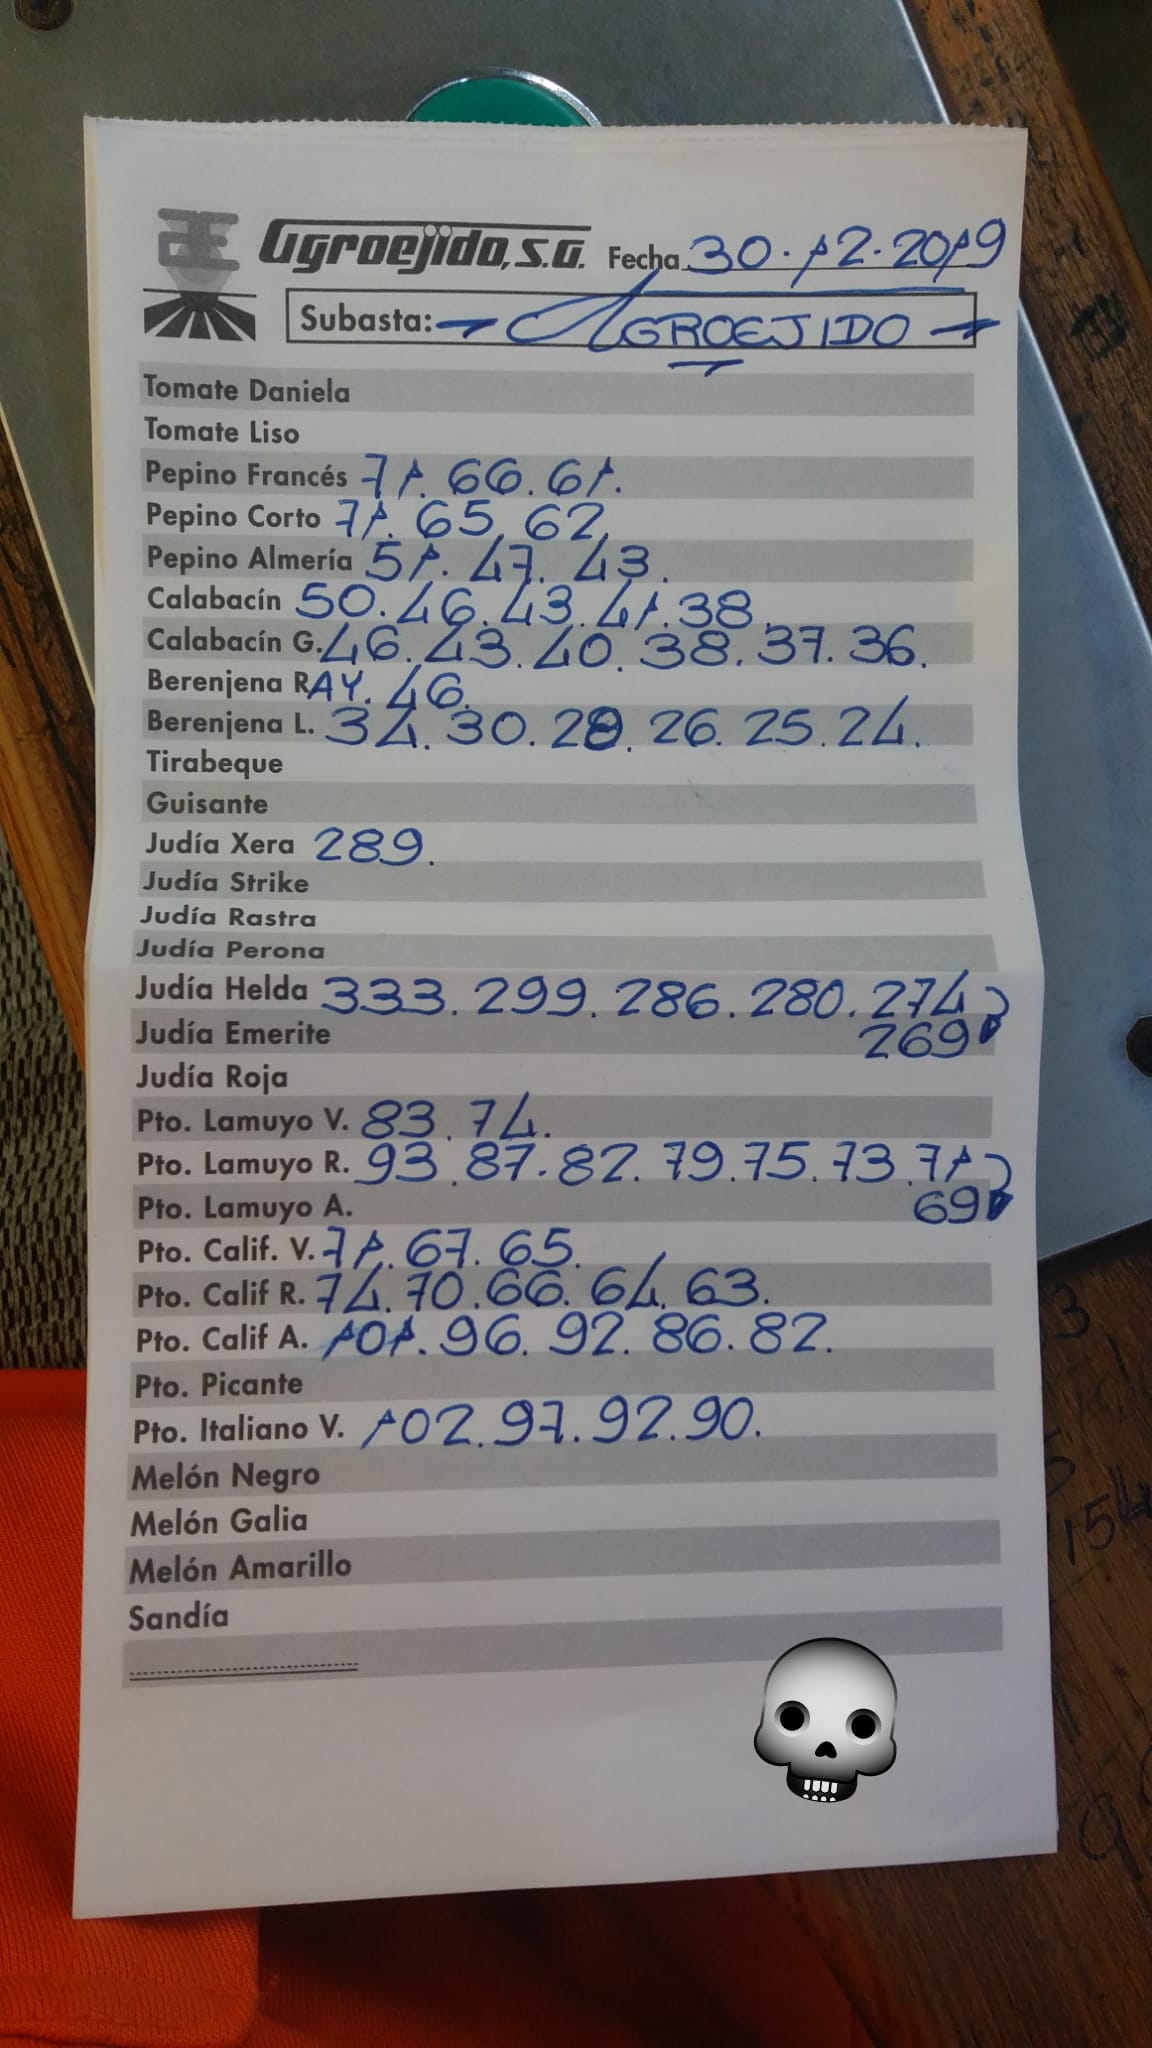 Agroejido, S.A. Fecha 30.12.2019
Subasta: - AGROEJIDO -
Tomate Daniela
Tomate Liso
Pepino Francés 71. 66. 61.
Pepino Corto 71. 65. 62.
Pepino Almería 51. 47. 43.
Calabacín 50. 46. 43. 41. 38.
Calabacín G. 46. 43. 40. 38. 37. 36.
Berenjena RAY. 46.
Berenjena L. 34. 30. 28. 26. 25. 24.
Tirabeque
Guisante
Judía Xera 289.
Judía Strike
Judía Rastra
Judía Perona
Judía Helda 333. 299. 286. 280. 274
269
Judía Emerite
Judía Roja
Pto. Lamuyo V. 83. 74.
Pto. Lamuyo R. 93. 87. 82. 79. 75. 73. 71
69
Pto. Lamuyo A.
Pto. Calif. V. 71. 67. 65.
Pto. Calif R. 74. 70. 66. 64. 63.
Pto. Calif A. 101. 96. 92. 86. 82.
Pto. Picante
Pto. Italiano V. 102. 97. 92. 90.
Melón Negro
Melón Galia
Melón Amarillo
Sandía
154